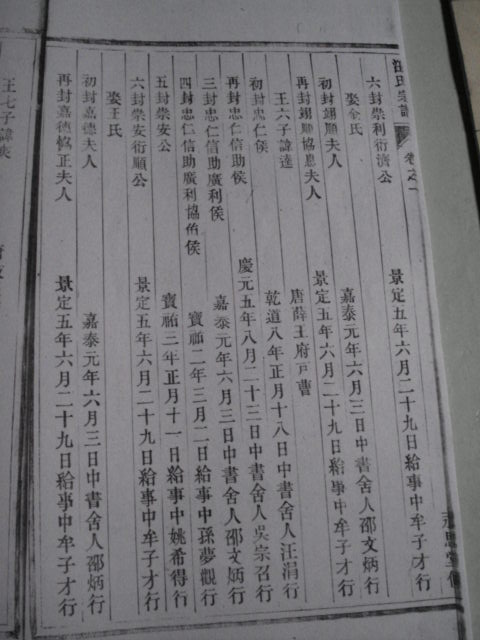 汪氏宗譜
卷之一
六封崇利衍濟公
景定五年六月二十九日給事中牟子才行
娶俞氏
嘉泰元年六月三日中書舍人邵文炳行
初封翊順夫人
景定五年六月二十九日給事中牟子才行
再封翊順協惠夫人
唐薛王府戸曹
王六子諱達
乾道八年正月十八日中書舍人汪涓行
初封忠仁侯
慶元五年八月二十三日中書舍人吳宗召行
再封忠仁信助侯
嘉泰元年六月三日中書舍人邵文炳行
三封忠仁信助廣利侯
寶祐二年三月二日給事中孫夢觀行
四封忠仁信助廣利協佑侯
寶祐三年正月十一日給事中姚希得行
五封崇安公
景定五年六月二十九日給事中牟子才行
六封崇安衍順公
娶王氏
嘉泰元年六月三日中書舍人邵炳行
初封嘉德夫人
景定五年六月二十九日給事中牟子才行
再封嘉德協正夫人
王七子諱爽